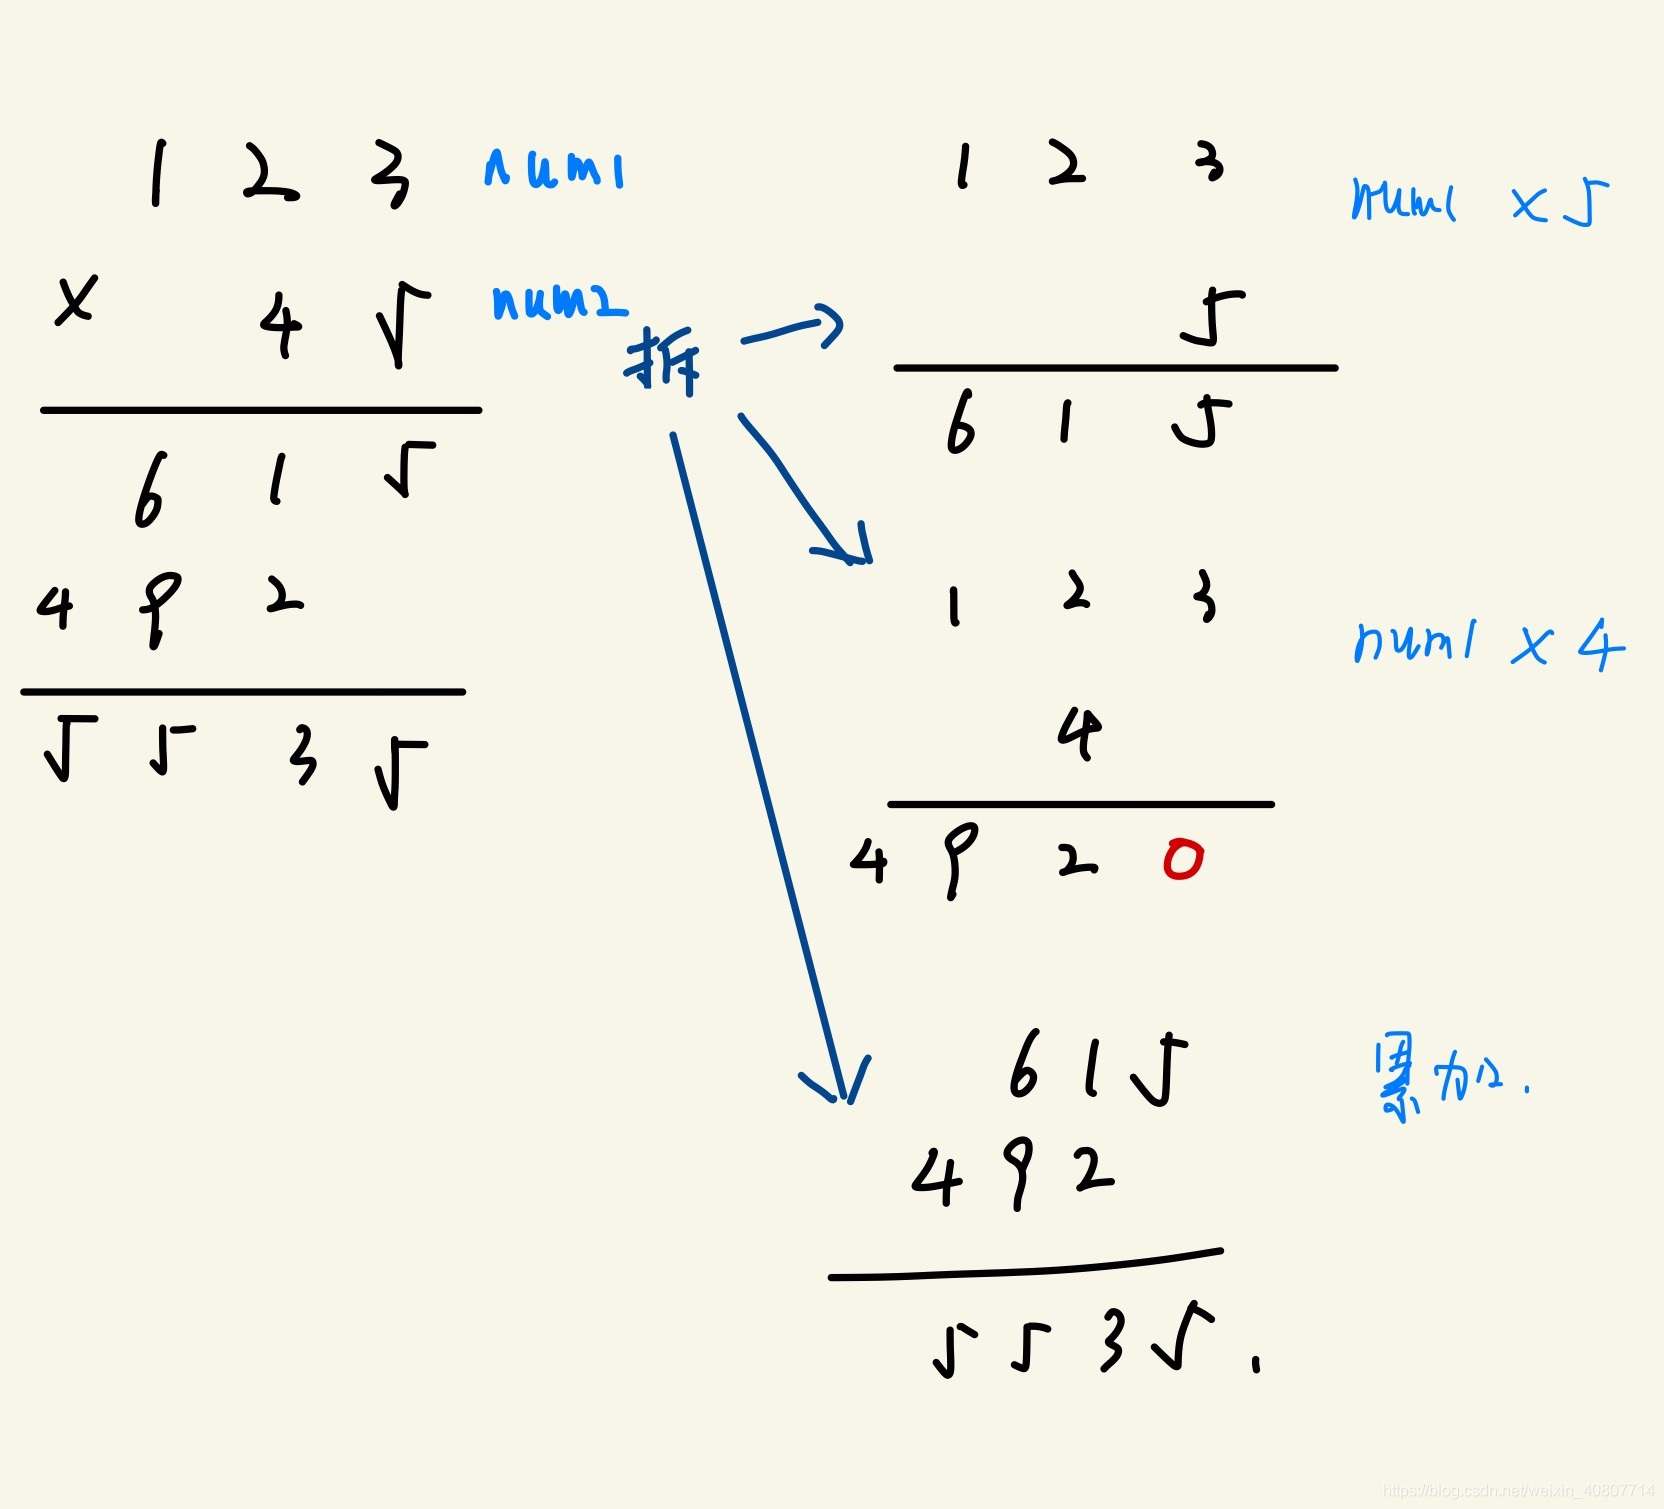 1 2 3 num1
× 4 5 num2
6 1 5
4 9 2
5 5 3 5
拆
1 2 3 num1 × 5
5
6 1 5
1 2 3
num1 × 4
4
4 9 2 0
6 1 5 累加.
4 9 2
5 5 3 5.
https://blog.csdn.net/weixin_40807714